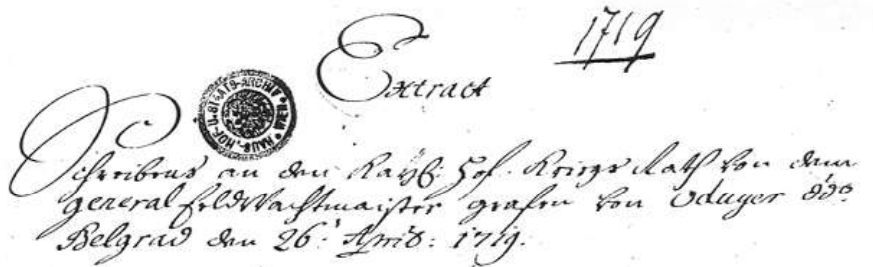 1719
Extract
HAUS-, HOF- U. STAATS-ARCHIV * WIEN *
Schreibens an den Kayß: Hof-Kriegs Rath von dem
general FeldWachtmaister grafen von Oduyer ddo
Belgrad den 26: April: 1719.